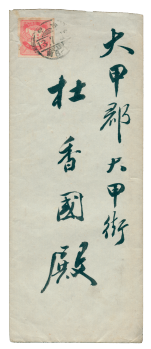 大甲郡大甲街
杜香國殿